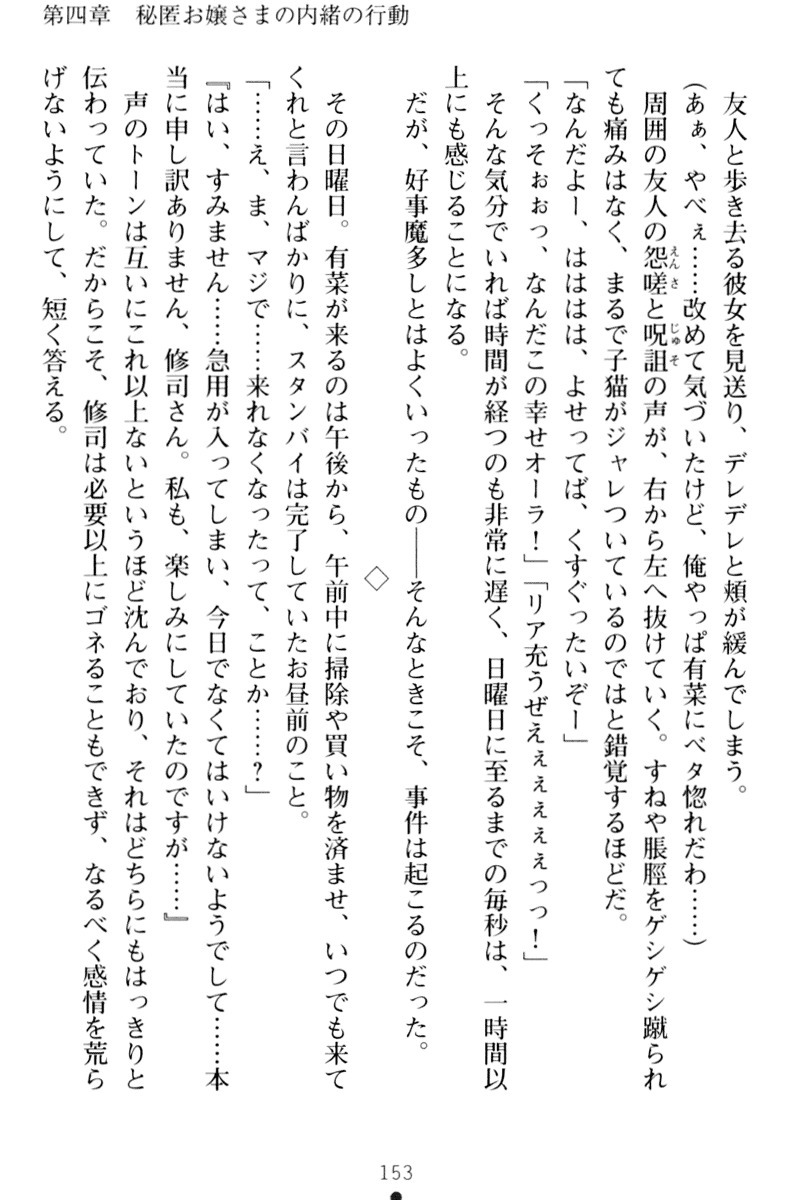 第四章　秘匿お嬢さまの内緒の行動
　友人と歩き去る彼女を見送り、デレデレと頬が緩んでしまう。
（あぁ、やべぇ……改めて気づいたけど、俺やっぱ有菜にベタ惚れだわ……）
　周囲の友人の怨嗟と呪詛の声が、右から左へ抜けていく。すねや脹脛をゲシゲシ蹴られ
ても痛みはなく、まるで子猫がジャレついているのではと錯覚するほどだ。
「なんだよー、はははは、よせってば、くすぐったいぞー」
「くっそぉぉっ、なんだこの幸せオーラ！」「リア充うぜえぇぇぇぇぇっっ！」
　そんな気分でいれば時間が経つのも非常に遅く、日曜日に至るまでの毎秒は、一時間以
上にも感じることになる。
　だが、好事魔多しとはよくいったもの――そんなときこそ、事件は起こるのだった。
◇
　その日曜日。有菜が来るのは午後から、午前中に掃除や買い物を済ませ、いつでも来て
くれと言わんばかりに、スタンバイは完了していたお昼前のこと。
「……え、ま、マジで……来れなくなったって、ことか……？」
『はい、すみません……急用が入ってしまい、今日でなくてはいけないようでして……本
当に申し訳ありません、修司さん。私も、楽しみにしていたのですが……』
　声のトーンは互いにこれ以上ないというほど沈んでおり、それはどちらにもはっきりと
伝わっていた。だからこそ、修司は必要以上にゴネることもできず、なるべく感情を荒ら
げないようにして、短く答える。
153